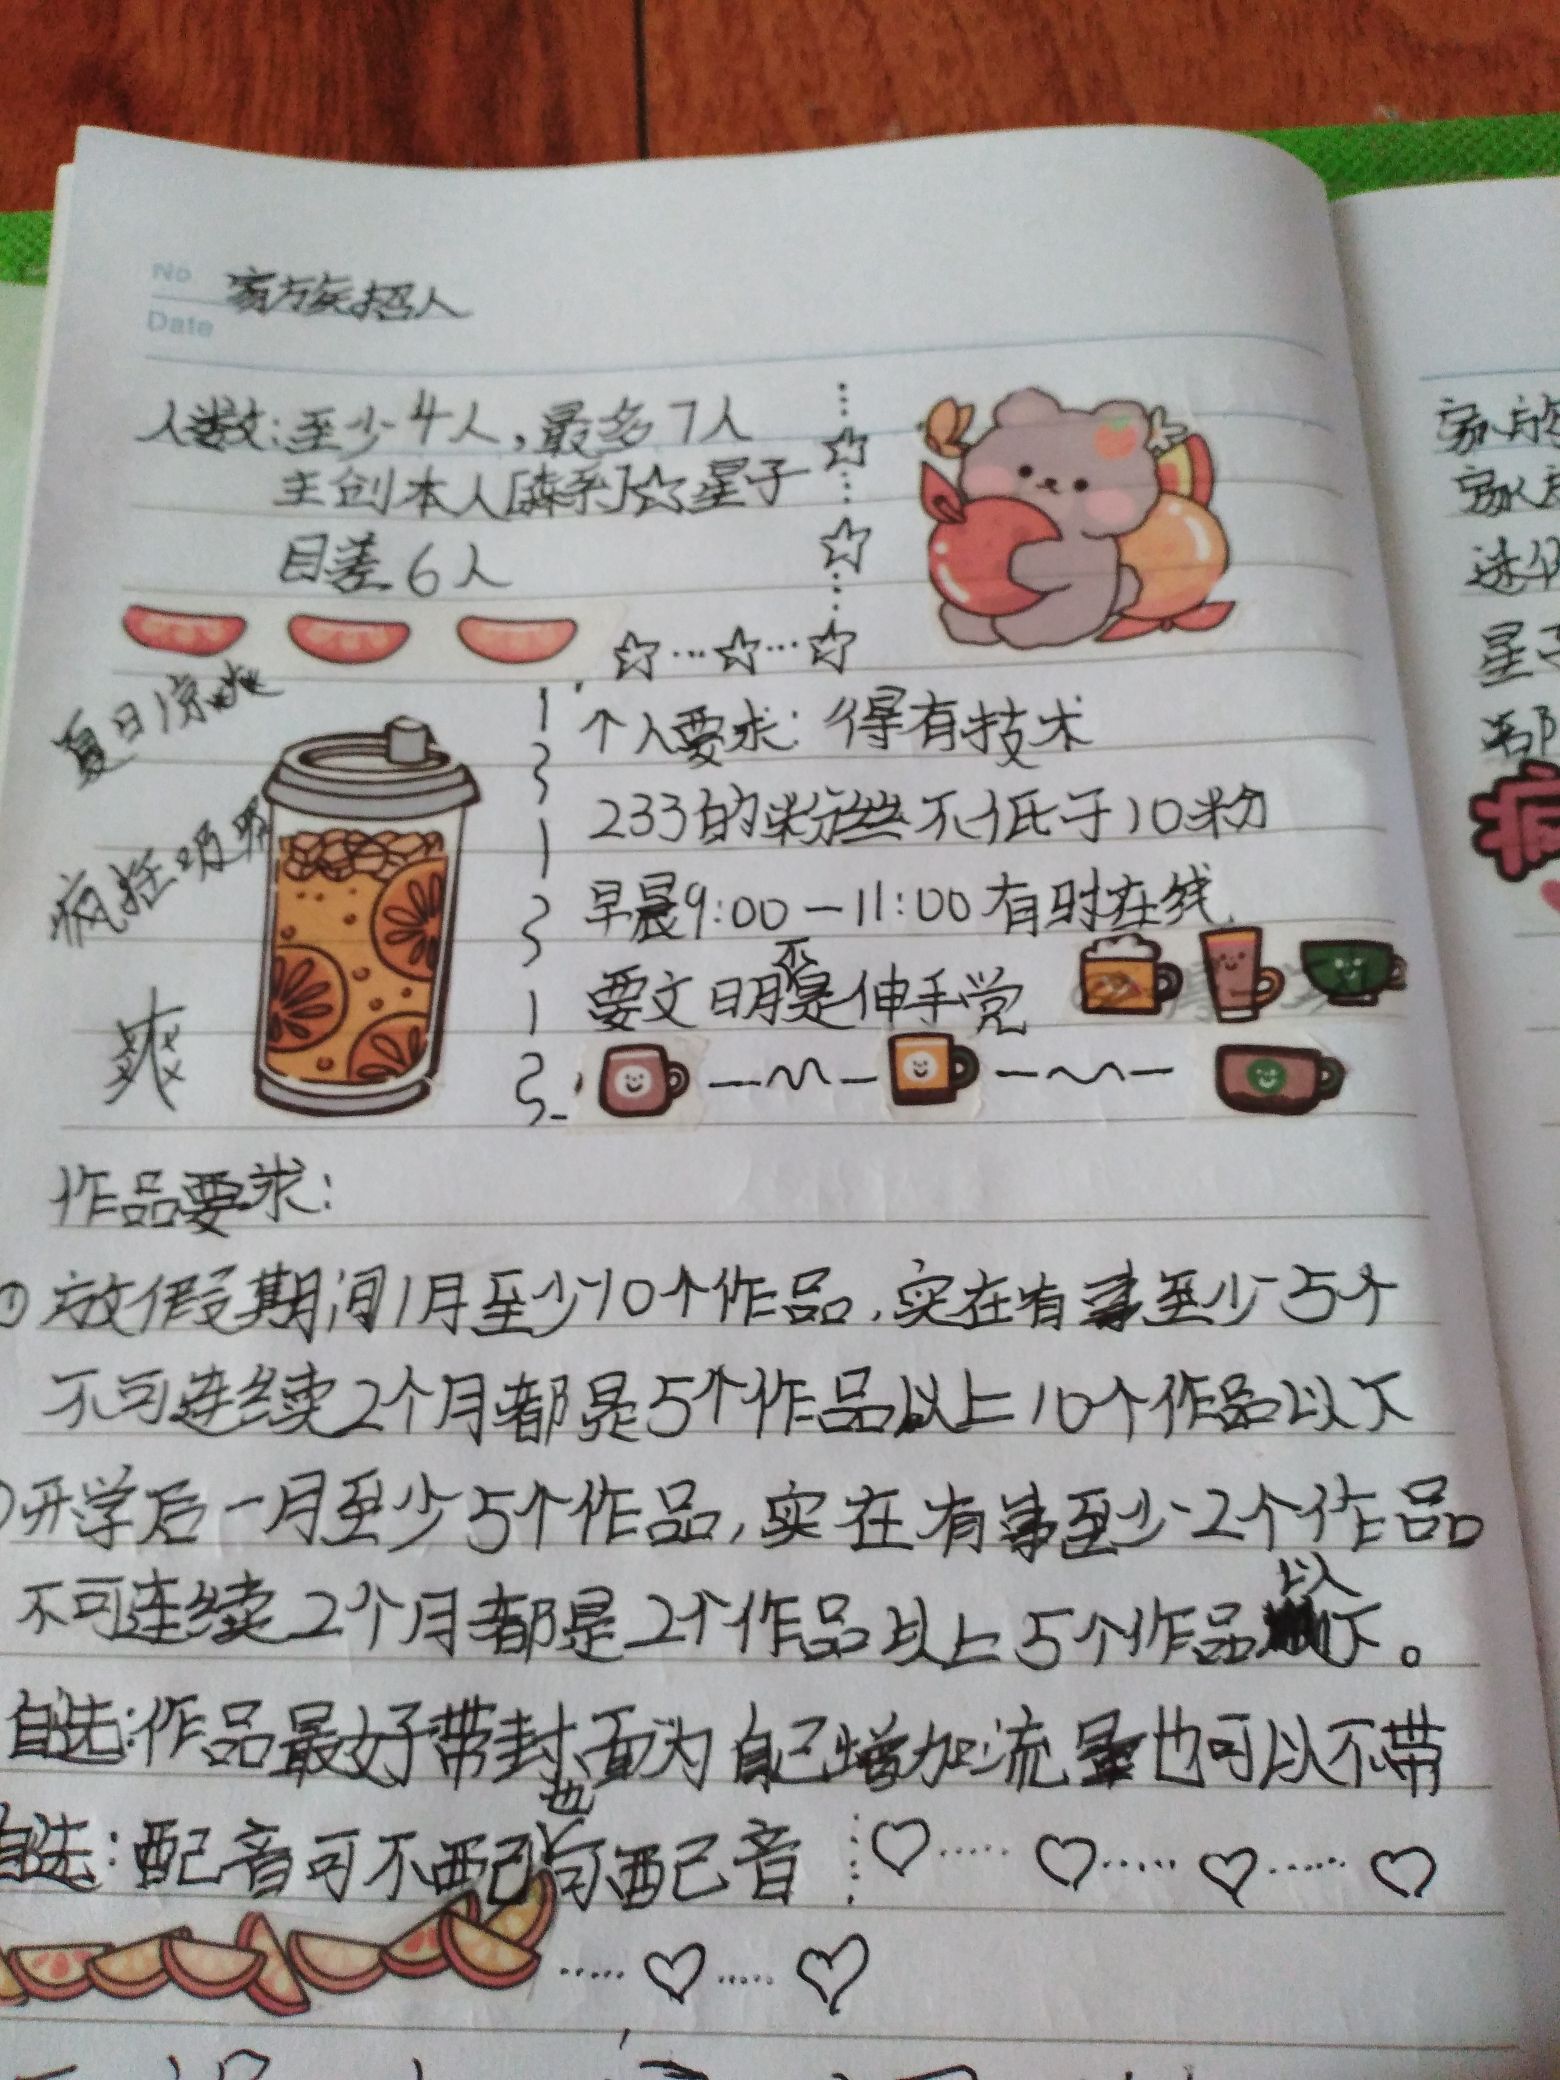 No 家族招人
Date
人数:至少4人,最多7人
主创本人[森系]☆星子
目差6人
夏日凉爽
疯狂吸吸
爽
个人要求:得有技术
233的粉丝不低于10粉
早晨9:00—11:00有时在线
要文明不是伸手党
作品要求:
①放假期间1月至少10个作品,实在有事至少5个
不可连续2个月都是5个作品以上10个作品以下
开学后一月至少5个作品,实在有事至少2个作品
不可连续2个月都是2个作品以上5个作品以下。
自选:作品最好带封面为自己增加流量也可以不带
自选:配音可不配也可配音
家族
星子
疯